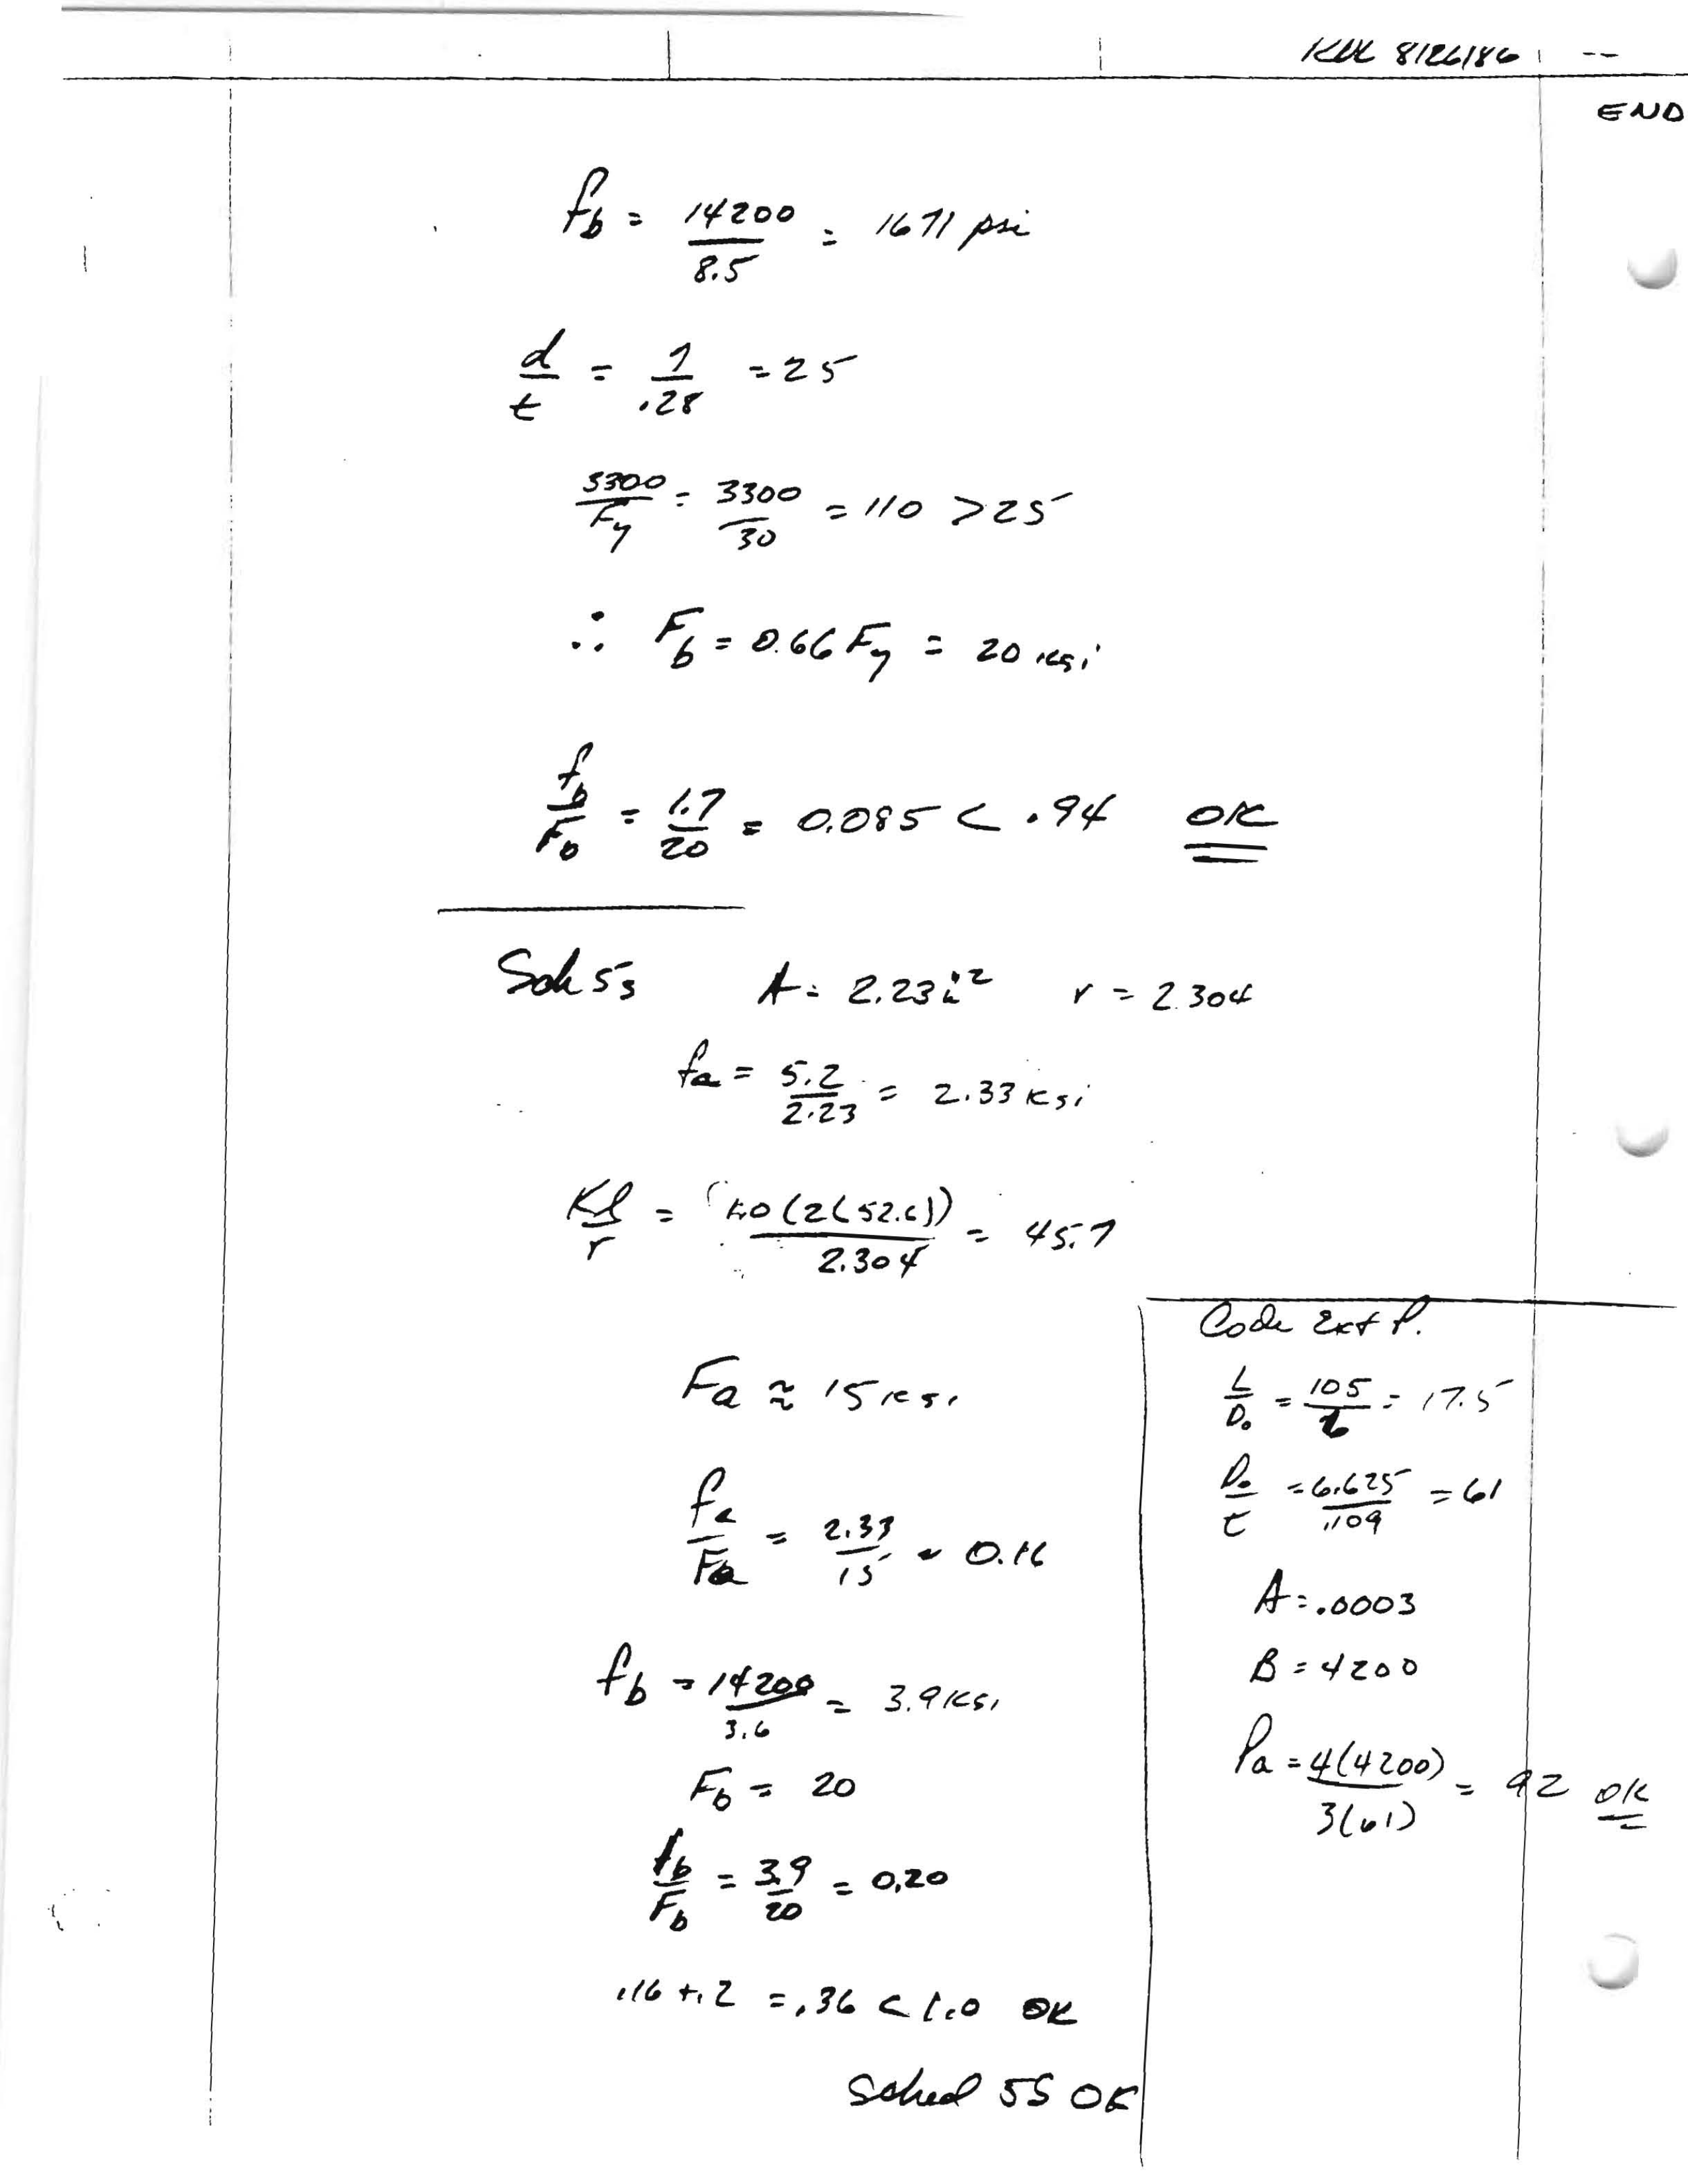 KDK 8/26/86 --
END
fb = 14200/8.5 = 1671 psi
d/t = 7/.28 = 25
3300/Fy = 3300/30 = 110 > 25
∴ Fb = 0.66 Fy = 20 ksi
fb/Fb = 1.7/20 = 0.085 < .94 OK
Sch 5s A = 2.23 in² r = 2.304
fa = 5.2/2.23 = 2.33 ksi
Kl/r = 1.0(2(52.6))/2.304 = 45.7
Fa ≈ 15 ksi
fa/Fa = 2.33/15 = 0.16
fb = 14200/3.6 = 3.9 ksi
Fb = 20
fb/Fb = 3.9/20 = 0.20
.16 + .2 = .36 < 1.0 OK
Sched 5S OK
Code Ext P.
L/Do = 105/6 = 17.5
Do/t = 6.625/.109 = 61
A = .0003
B = 4200
Pa = 4(4200)/3(61) = 92 OK